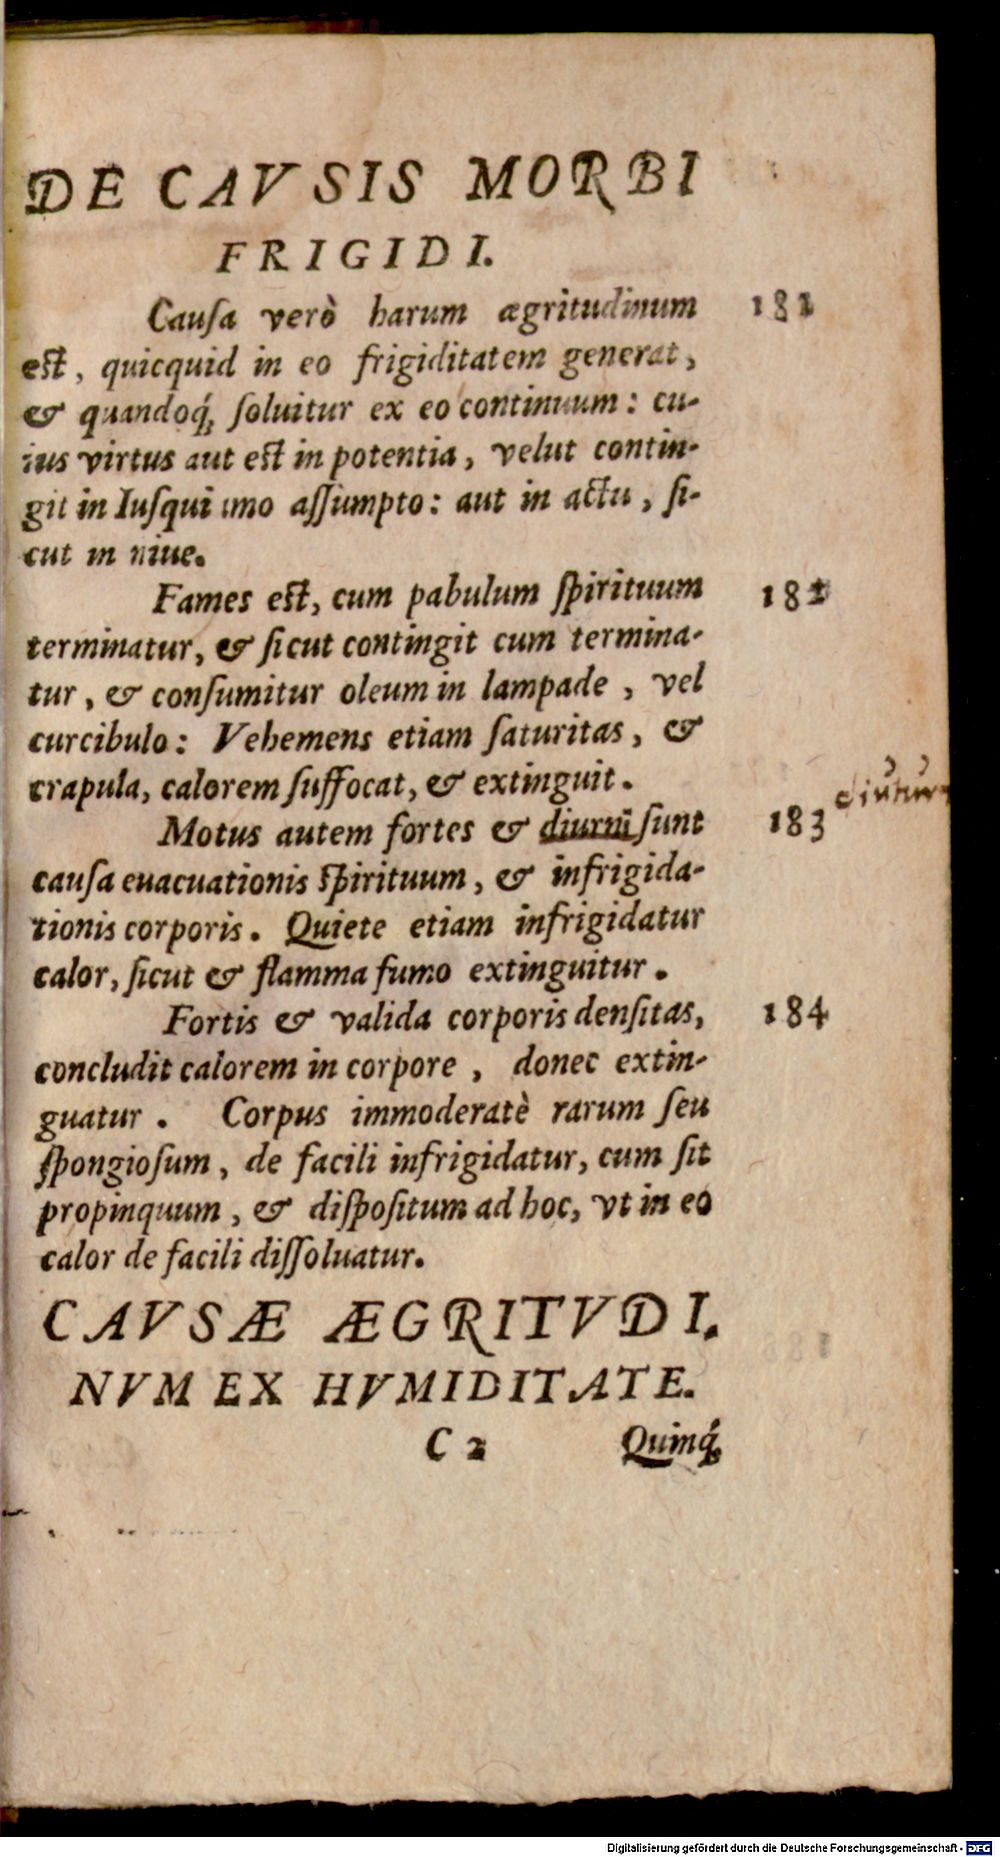 DE CAVSIS MORBI
FRIGIDI.
Causa verò harum ægritudinum 181
est, quicquid in eo frigiditatem generat,
& quandoq́; soluitur ex eo continuum: cu-
ius virtus aut est in potentia, velut contin-
git in Iusquiamo assumpto: aut in actu, si-
cut in niue.
Fames est, cum pabulum spirituum 182
terminatur, & sicut contingit cum termina-
tur, & consumitur oleum in lampade, vel
curcibulo: Vehemens etiam saturitas, &
crapula, calorem suffocat, & extinguit.
diuturni
Motus autem fortes & diurni sunt 183
causa euacuationis spirituum, & infrigida-
tionis corporis. Quiete etiam infrigidatur
calor, sicut & flamma fumo extinguitur.
Fortis & valida corporis densitas, 184
concludit calorem in corpore, donec extin-
guatur. Corpus immoderatè rarum seu
spongiosum, de facili infrigidatur, cum sit
propinquum, & dispositum ad hoc, vt in eo
calor de facili dissoluatur.
CAVSÆ ÆGRITVDI.
NVM EX HVMIDITATE.
C 2 Quinq́;
Digitalisierung gefördert durch die Deutsche Forschungsgemeinschaft - DFG